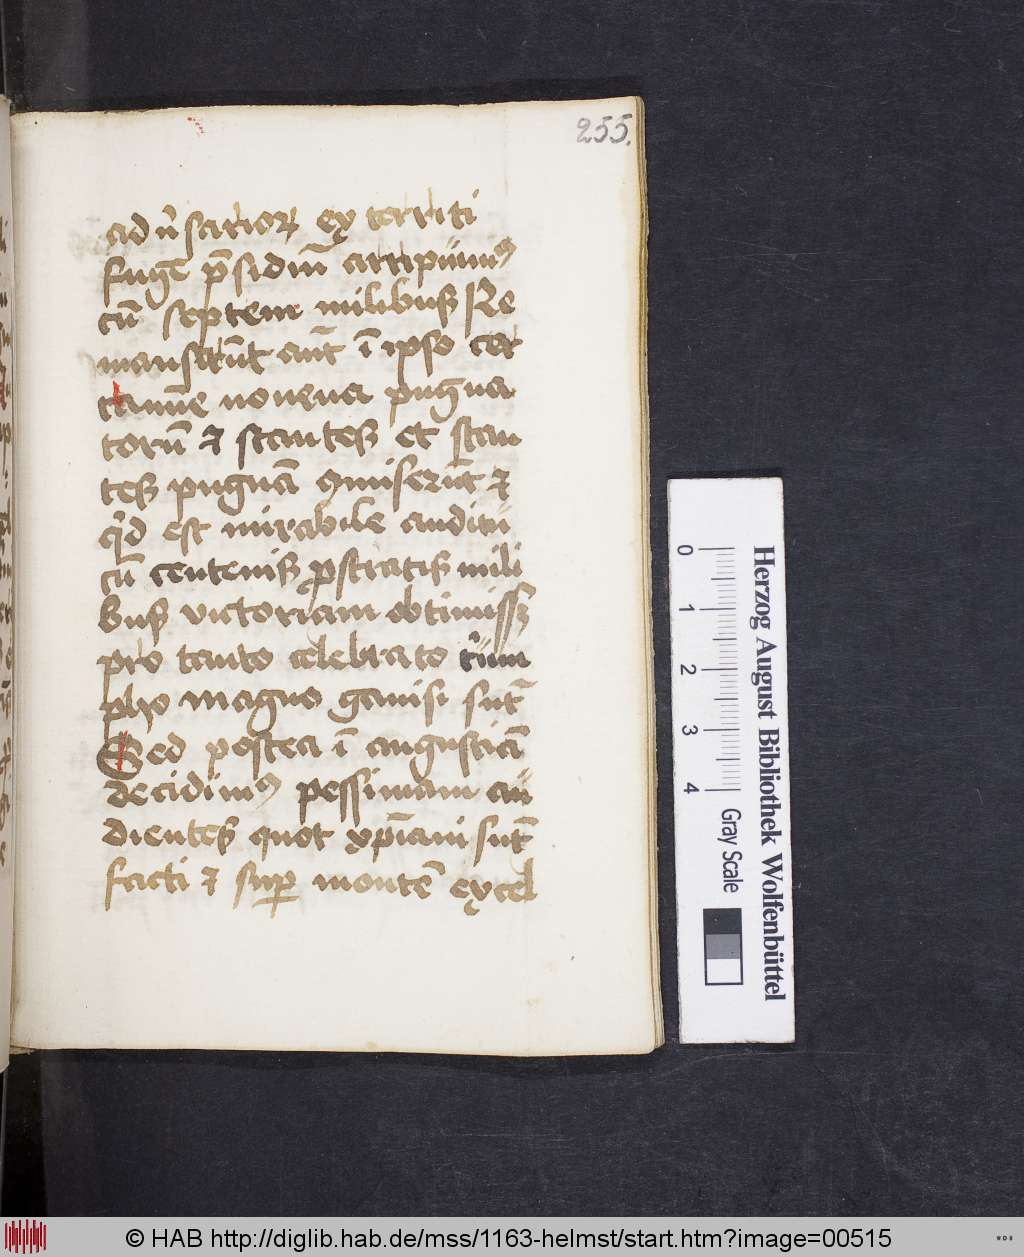 255.
adũsarioꝝ exterriti
fuge p̄sidiũ arripuimꝰ
cũ septem milibus Re
manserũt aut̄ ī ipso cer
tamīe nouena pugna
torũ ⁊ stantes et stan
tes pugnā ꝯmiserũt ⁊
qͥd est mirabile auditu
cũ centenis ꝓstratis mili
bus victoriam obtinuissꝫ
pro tanto celebrato trium
pho magno gauisi sũt
Sed postea ī angustiā
decidimꝰ pessimam au
dientes quot xp̄iani sũt
facti ⁊ suꝑ montē excel
Herzog August Bibliothek Wolfenbüttel
0 1 2 3 4 Gray Scale
© HAB http://diglib.hab.de/mss/1163-helmst/start.htm?image=00515